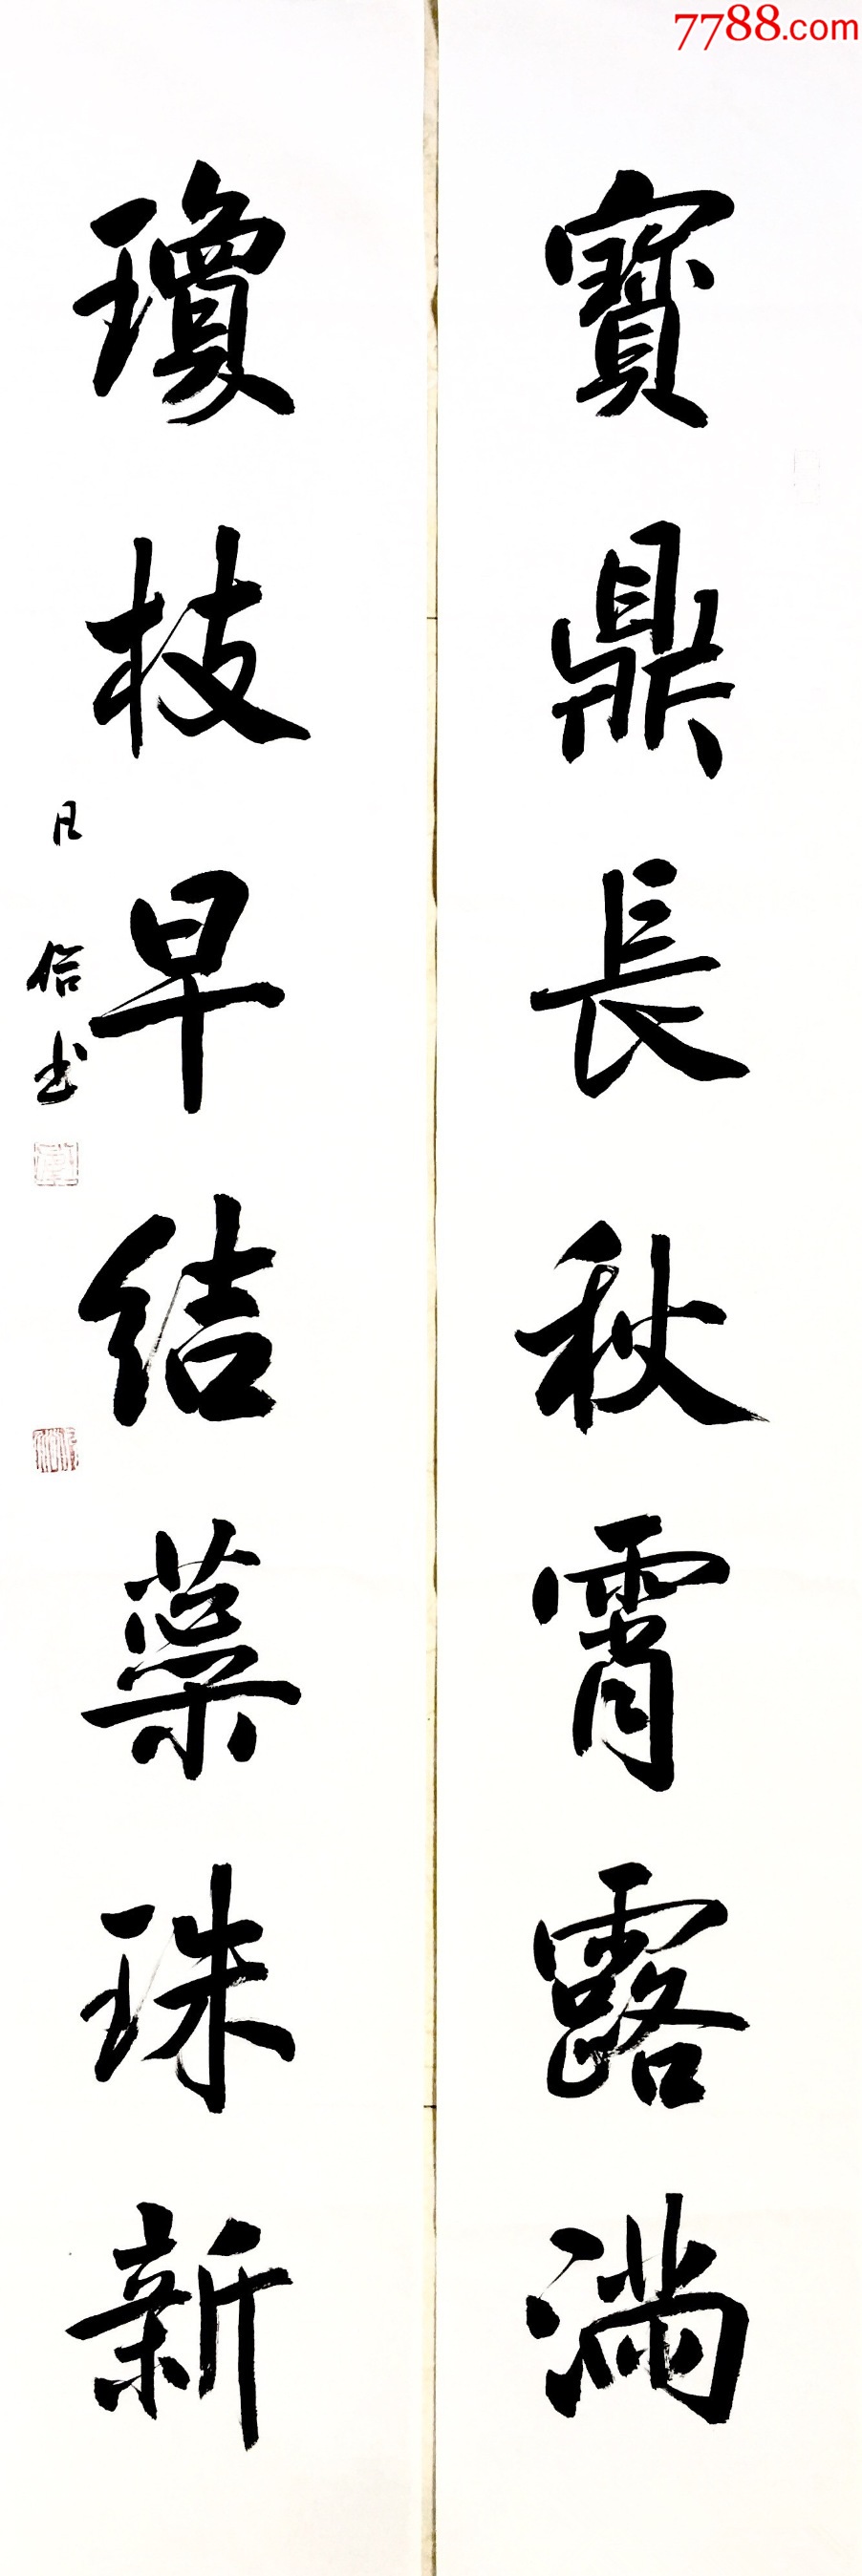 7788.com
寶鼎長秋霄露滿
瓊枝早結蘂珠新